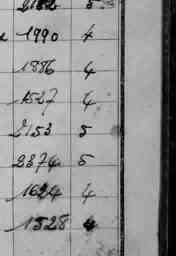 1990 4
1886 4
1527 4
2153 5
2374 5
1624 4
1528 4